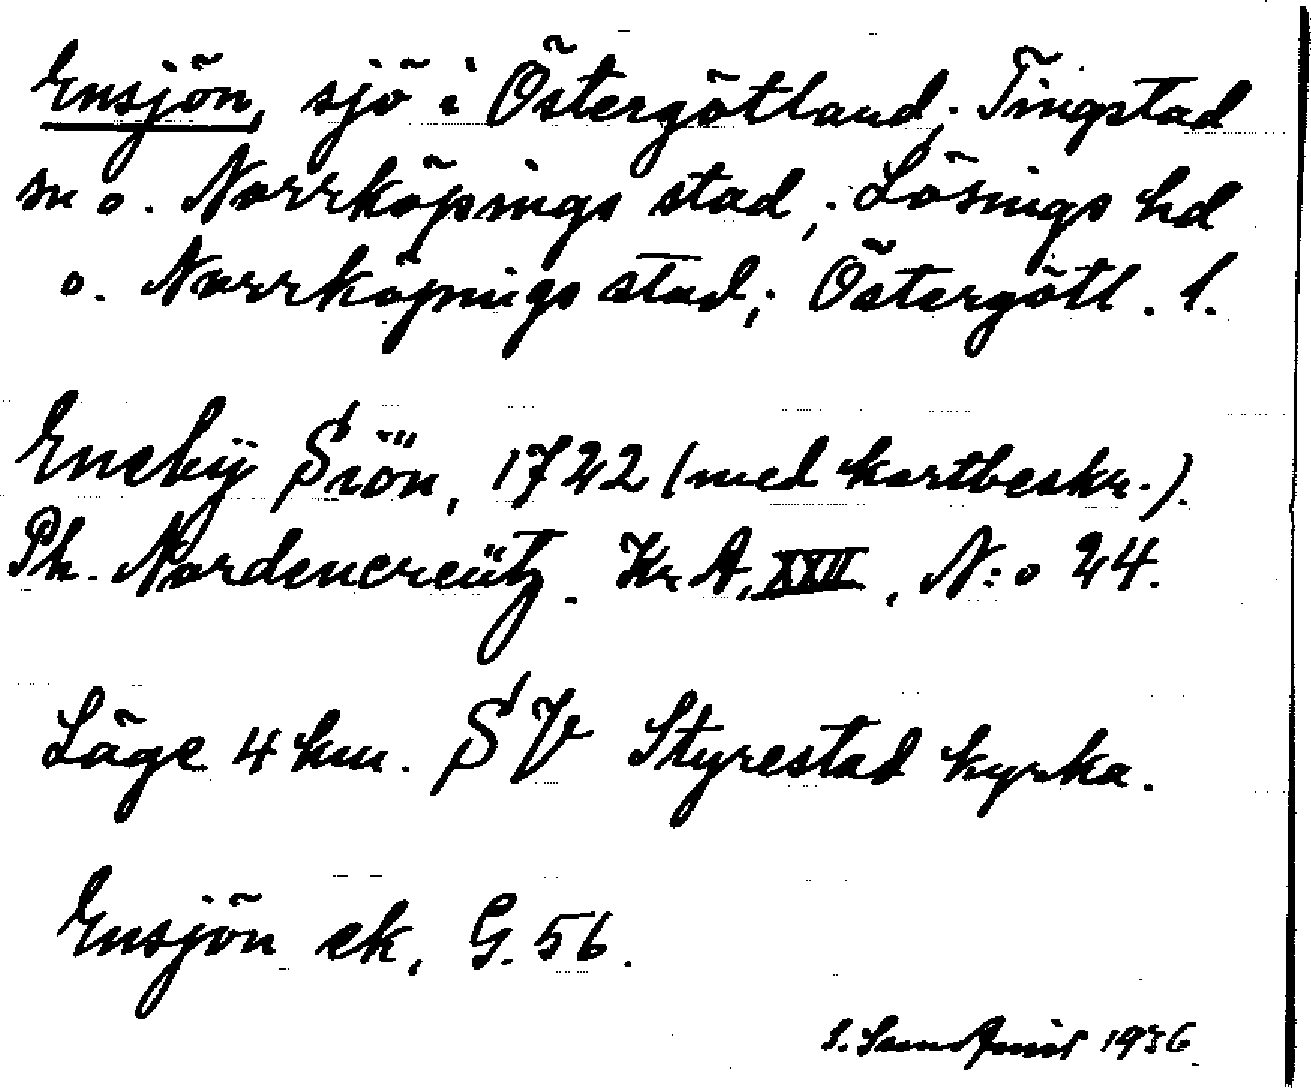 Ensjön, sjö i Östergötland; Tingstad
sn o. Norrköpings stad; Lösings hd
o. Norrköpings stad; Östergötl. l.
Eneby Siön, 1722 (med kartbeskr.).
Ph. Nordencreütz. Kr A, XXII, N:o 24.
Läge 4 km. SV Styrestad kyrka.
Ensjön ek. G. 56.
1936